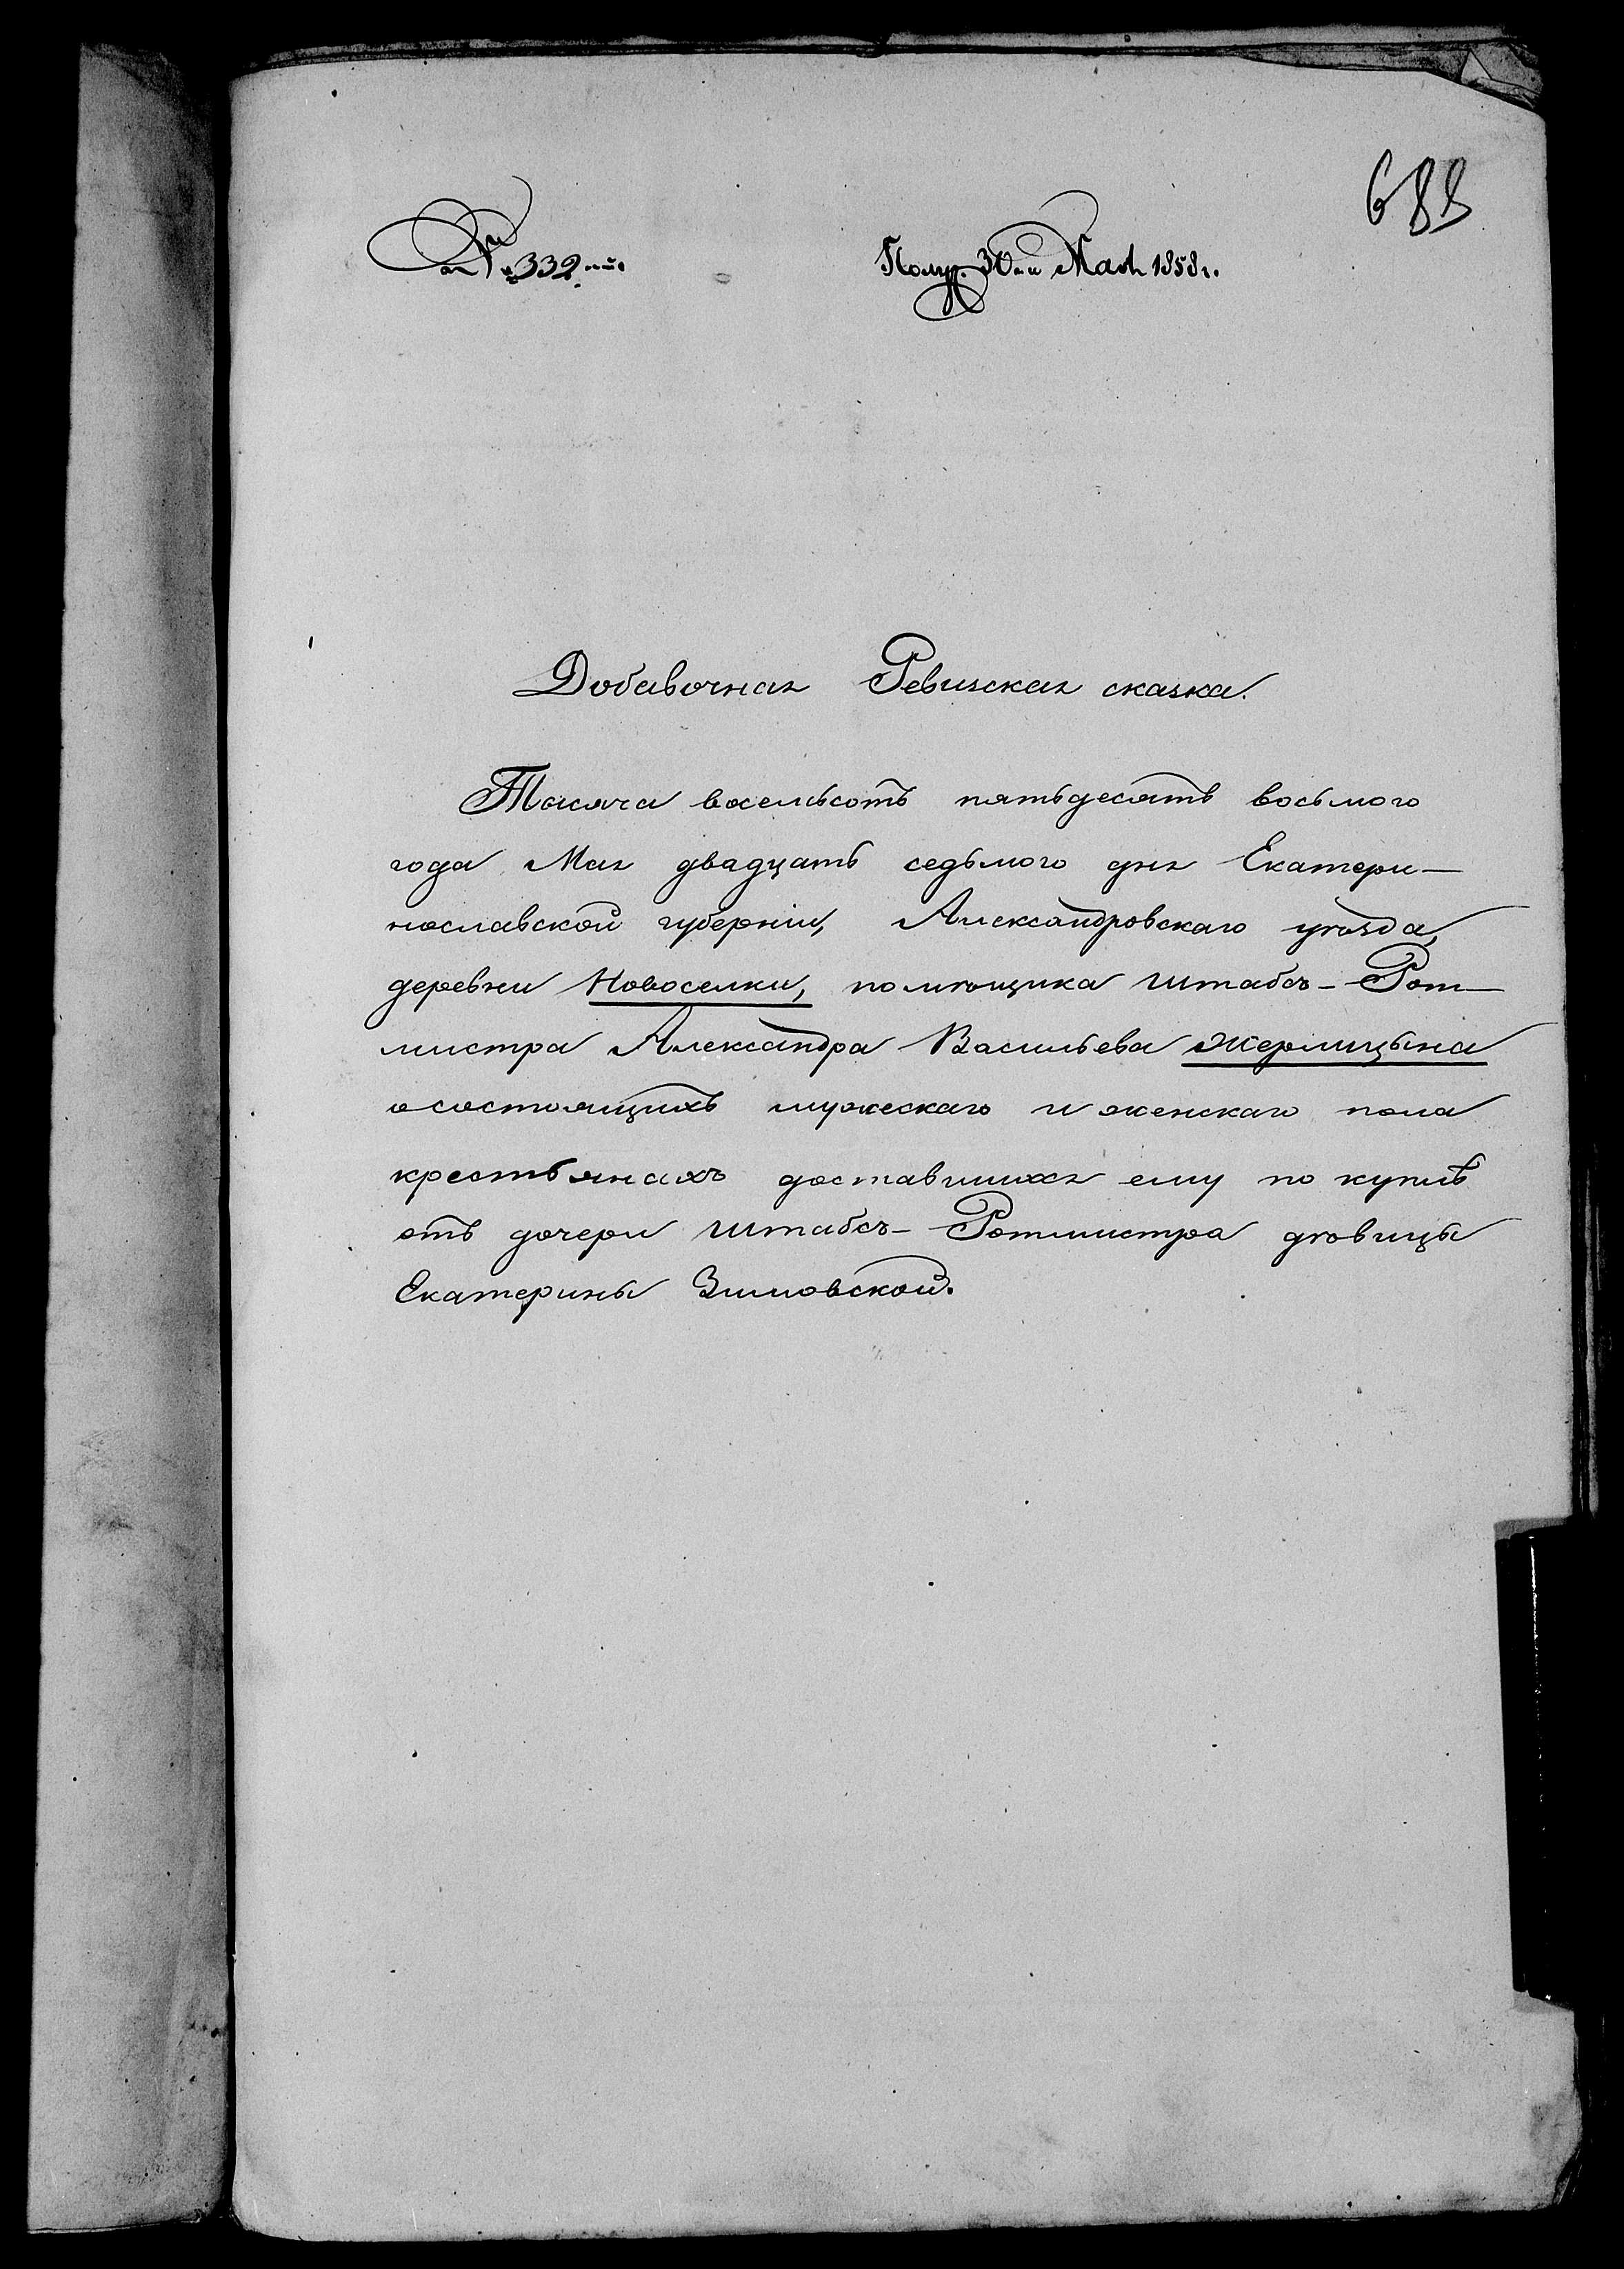 688
№ 332.
Получ. 30го Мая 1858 г.
Добавочная Ревизская сказка.
Тысяча восемьсотъ пятьдесятъ восьмого
года Мая двадцать седьмого дня Екатери-
нославской губерніи, Александровскаго уѣзда,
деревни Новоселки, помѣщика Штабсъ-Рот-
мистра Александра Васильева Жермицына
о состоящихъ мужескаго и женскаго пола
крестьянахъ доставшихся ему по куплѣ
отъ дочери Штабсъ-Ротмистра дѣвицы
Екатерины Зимовской.